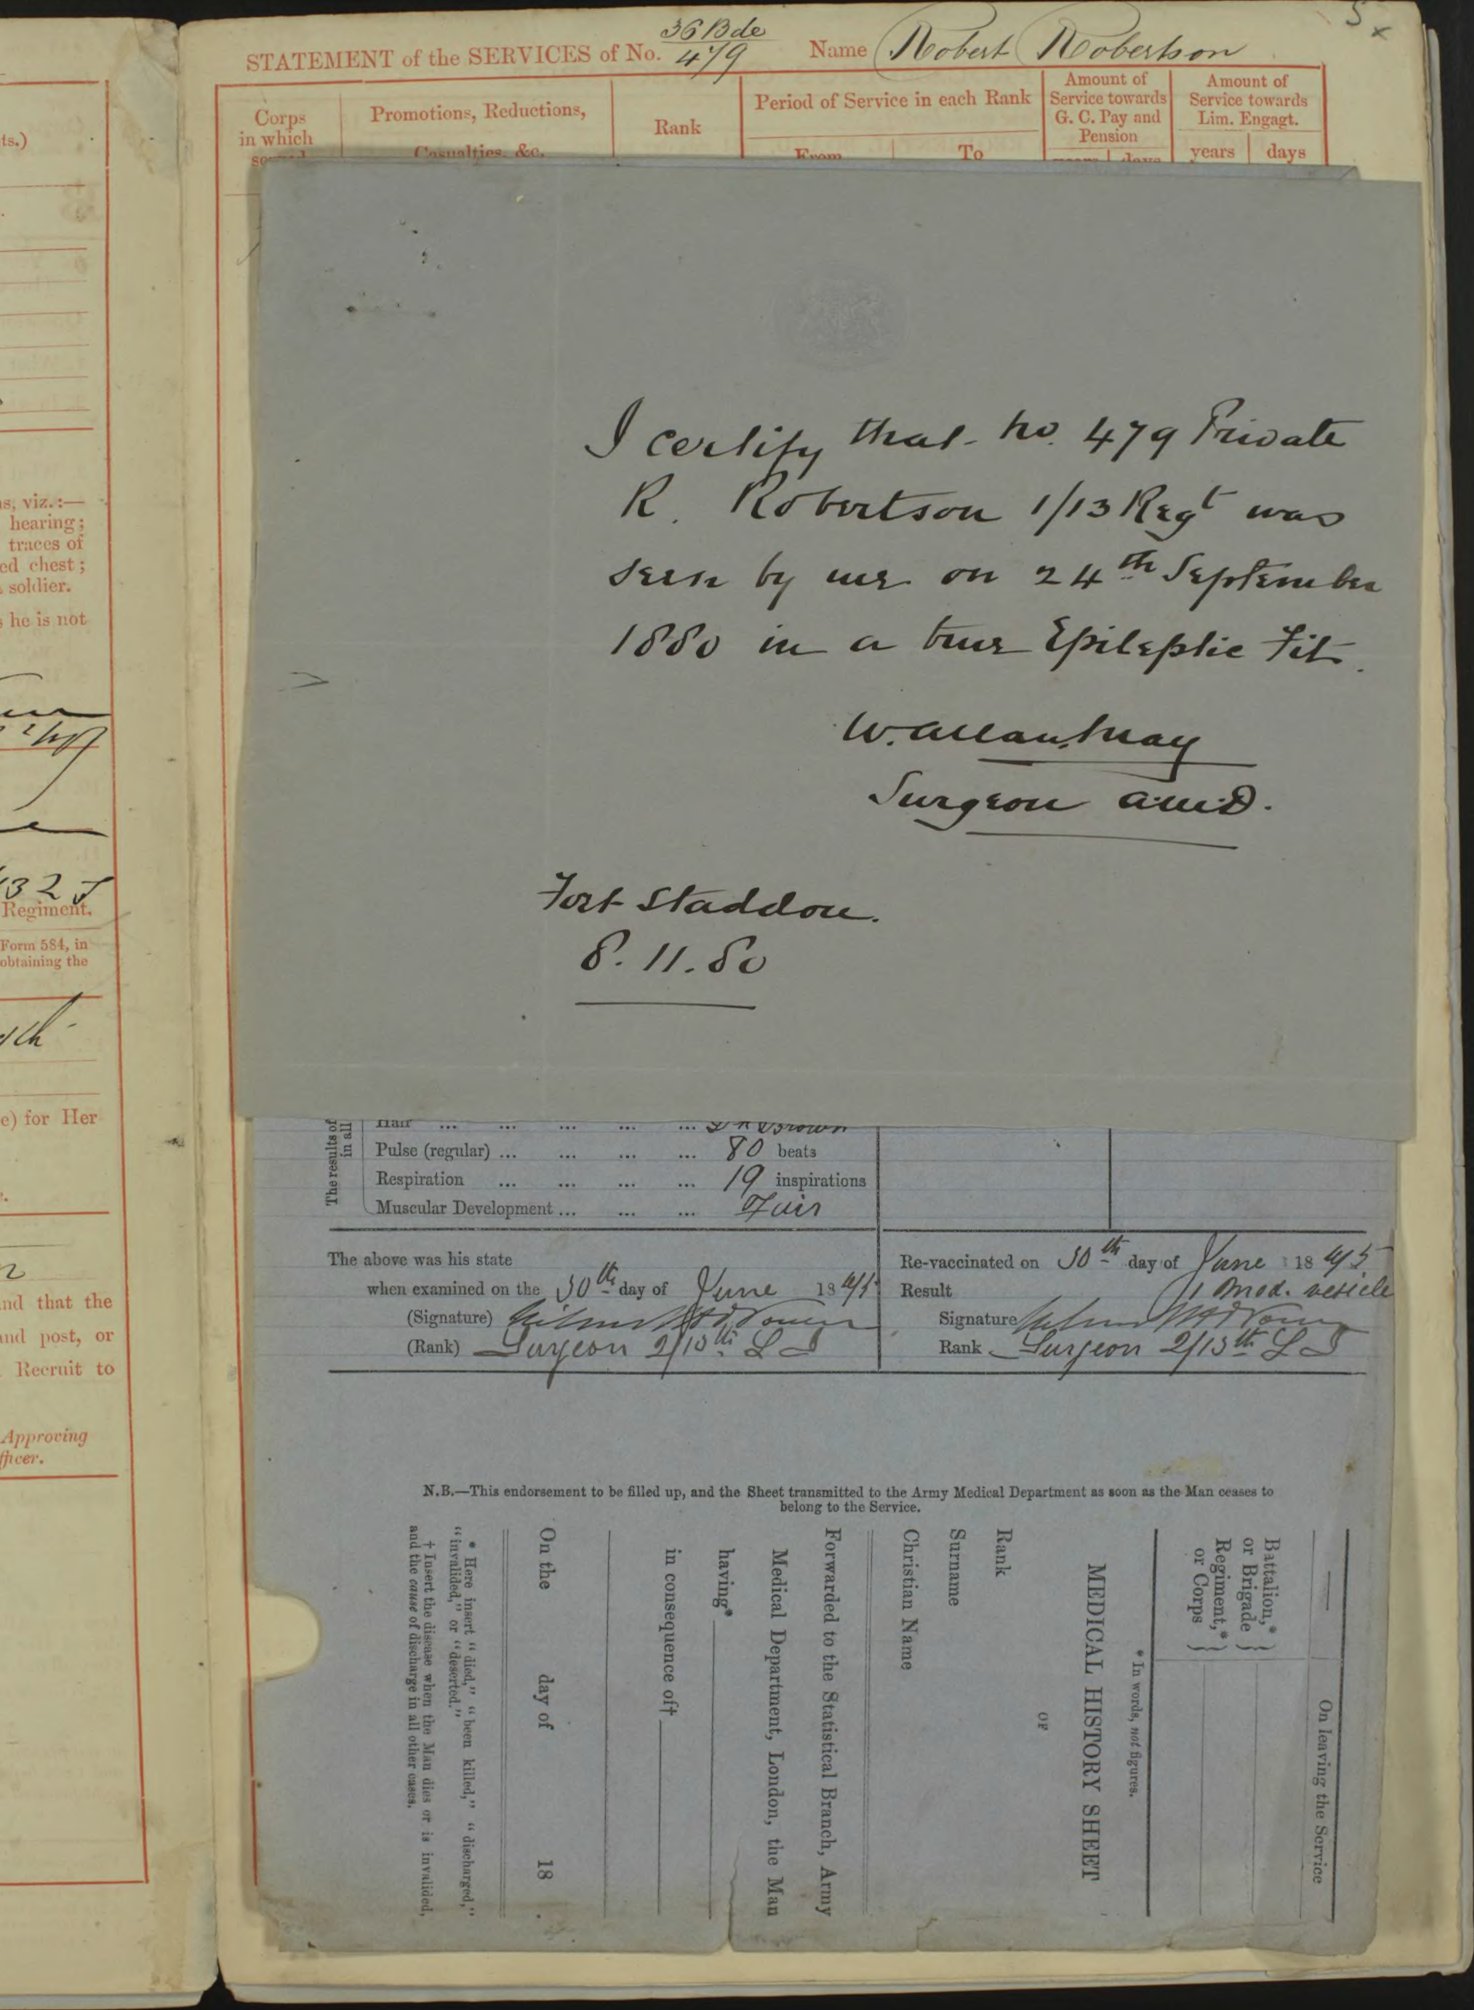 5
x
STATEMENT of the SERVICES of No. 36 Bde / 479 Name Robert Robertson
Corps in which
Promotions, Reductions, Casualties, &c.
Rank
Period of Service in each Rank
From
To
Amount of Service towards G. C. Pay and Pension
years days
Amount of Service towards Lim. Engagt.
years days
ts.)
s, viz.:—
hearing;
traces of
ed chest;
soldier.
he is not
Regiment.
Form 584, in
obtaining the
e) for Her
and that the
and post, or
Recruit to
Approving
fficer.
I certify that no. 479 Private
R. Robertson 1/13 Regt was
seen by me on 24th September
1880 in a true Epileptic Fit.
W. Allan May
Surgeon A.M.D.
Fort Staddon.
8. 11. 80
The results of
in all
Hair ... ... ... ... ... Dk Brown
Pulse (regular) ... ... ... ... 80 beats
Respiration ... ... ... ... 19 inspirations
Muscular Development ... ... ... Fair
The above was his state
when examined on the 30th day of June 18
(Signature)
(Rank) Surgeon 2/13th L I
Re-vaccinated on 30th day of June 18
Result 1 mod. vesicle
Signature
Rank Surgeon 2/13th L I
N.B.—This endorsement to be filled up, and the Sheet transmitted to the Army Medical Department as soon as the Man ceases to
belong to the Service.
On leaving the Service
Battalion,*
or Brigade
Regiment,*
or Corps
* In words, not figures.
MEDICAL HISTORY SHEET
OF
Rank
Surname
Christian Name
Forwarded to the Statistical Branch, Army
Medical Department, London, the Man
having*
in consequence of†
On the day of 18 .
* Here insert "died," "been killed," "discharged,"
"invalided," or "deserted."
† Insert the disease when the Man dies or is invalided,
and the cause of discharge in all other cases.